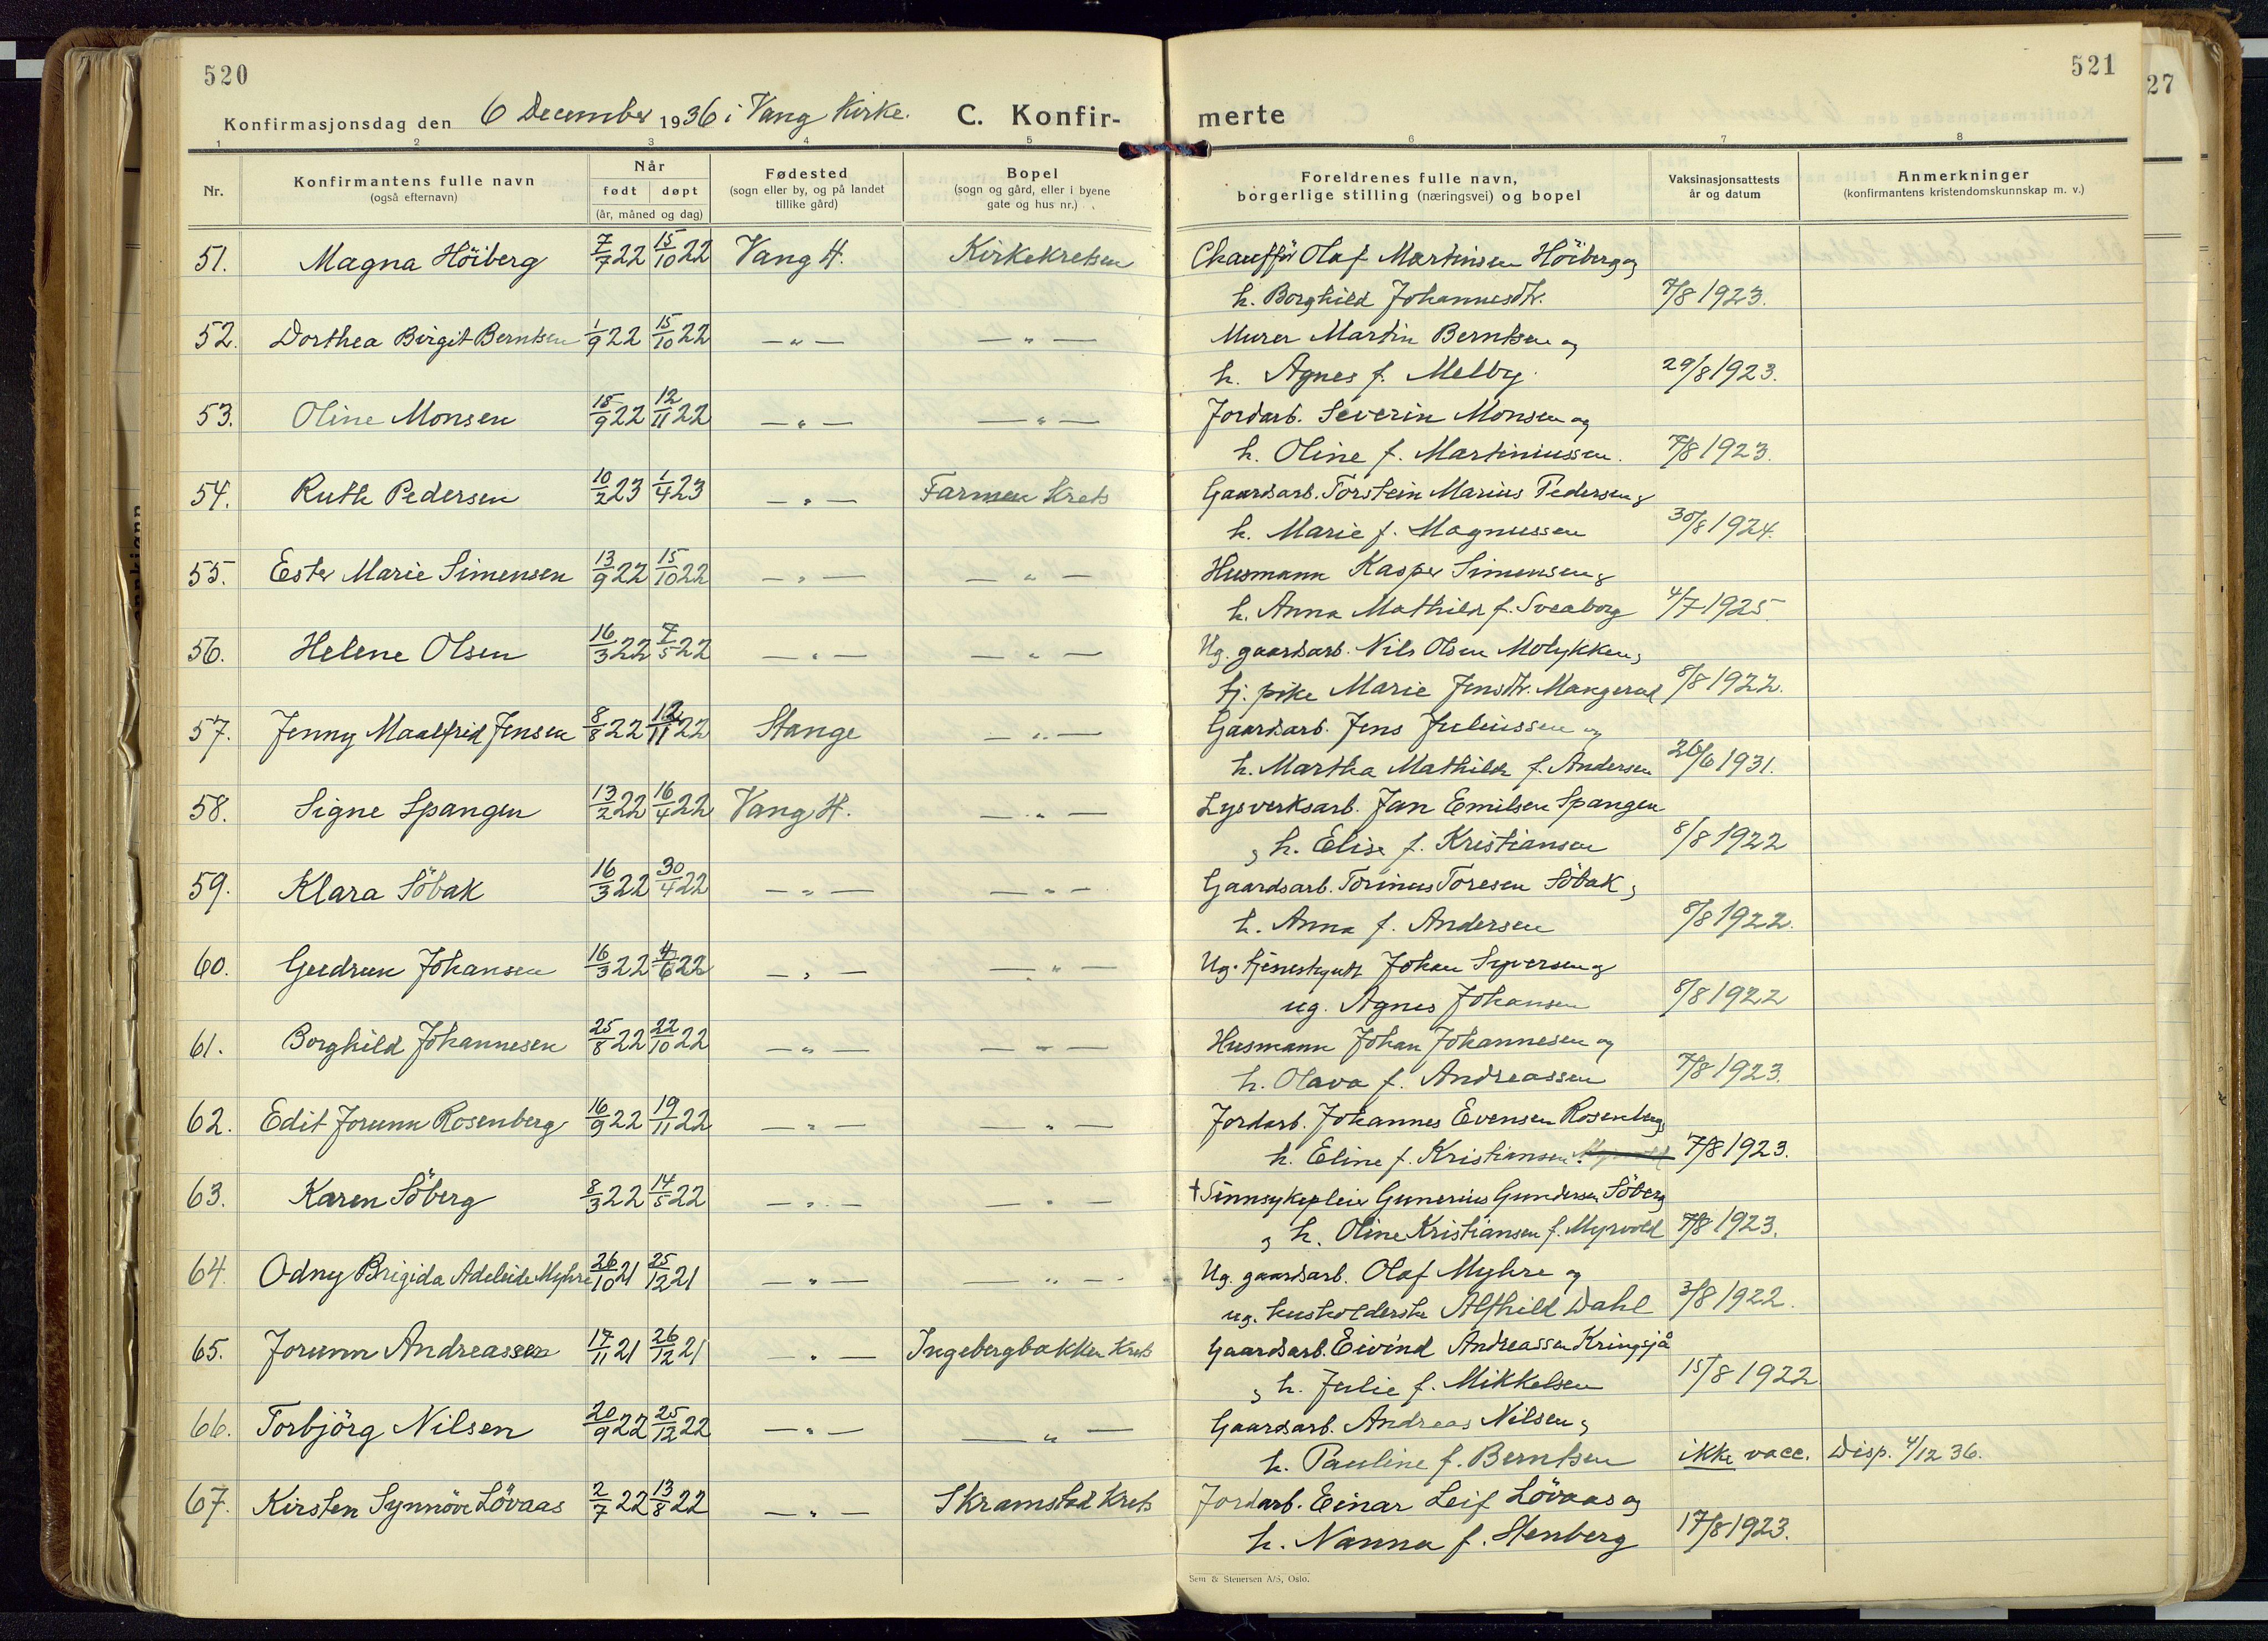 520
521
27
Konfirmasjonsdag den 6 December 1936 i Vang Kirke. C. Konfir-
merte
1 2 3 4 5 6 7 8
Nr. Konfirmantens fulle navn (også efternavn) Når født døpt (år, måned og dag) Fødested (sogn eller by, og på landet tillike gård) Bopel (sogn og gård, eller i byene gate og hus nr.) Foreldrenes fulle navn, borgerlige stilling (næringsvei) og bopel Vaksinasjonsattests år og datum Anmerkninger (konfirmantens kristendomskunnskap m. v.)
51. Magna Höiberg 7/7 22 15/10 22 Vang H. Kirkekretsen Chaufför Olaf Martinsen Höiberg og
h. Borghild Johannesdtr. 7/8 1923.
52. Dorthea Birgit Berntsen 1/9 22 15/10 22 — " — — " — Murer Martin Berntsen og
h. Agnes f. Melby. 29/8 1923.
53. Oline Monsen 18/9 22 12/11 22 — " — — " — Jordarb. Severin Monsen og
h. Oline f. Martiniussen. 7/8 1923.
54. Ruth Pedersen 10/2 23 1/4 23 — " — Farmen Krets Gaardsarb. Torstein Marius Pedersen &
h. Marie f. Magnussen 30/8 1924.
55. Ester Marie Simensen 13/9 22 15/10 22 — " — — " — Husmann Kasper Simensen &
h. Anna Mathilde f. Sveaborg 4/7 1925.
56. Helene Olsen 16/3 22 7/5 22 — " — — " — Ug. gaardsarb. Nils Olsen Molykken &
tj. pike Marie Jensdtr. Mangerud 8/8 1922.
57. Jenny Maalfrid Jensen 8/8 22 12/11 22 Stange — " — Gaardsarb. Jens Juliussen og
h. Martha Mathilde f. Andersen 26/6 1931.
58. Signe Spangen 13/2 22 16/4 22 Vang H. — " — Lysverksarb. Jan Emilsen Spangen
& h. Elise f. Kristiansen 8/8 1922
59. Klara Söbak 16/3 22 30/4 22 — " — — " — Gaardsarb. Torinus Toresen Söbak &
h. Anna f. Andersen 8/8 1922.
60. Gudrun Johansen 16/3 22 4/6 22 — " — — " — Ug. tjenestgutt Johan Syversen &
ug. Agnes Johansen 8/8 1922
61. Borghild Johannesen 25/8 22 22/10 22 — " — — " — Husmann Johan Johannesen og
h. Olava f. Andreassen 7/8 1923.
62. Edit Jorunn Rosenberg 16/9 22 19/11 22 — " — — " — Jordarb. Johannes Evensen Rosenberg &
h. Eline f. Kristiansen. 7/8 1923.
63. Karen Söberg 8/3 22 14/5 22 — " — — " — † Sinnsykepleier Gunerius Gundersen Söberg
& h. Oline Kristiansen f. Myrvold 7/8 1923.
64. Odny Brigida Adeleide Myhre 26/10 21 25/12 21 — " — — " — Ug. gaardsarb. Olaf Myhre og
ug. husholderske Alfhild Dahl 3/8 1922.
65. Jorunn Andreassen 17/11 21 26/12 21 — " — Ingebergbakken Krets Gaardsarb. Eivind Andreassen Kringsjå
& h. Julie f. Mikkelsen 15/8 1922
66. Torbjörg Nilsen 20/9 22 25/12 22 — " — — " — Gaardsarb. Andreas Nilsen &
h. Pauline f. Berntsen ikke vacc. Disp. 4/12 36.
67. Kirsten Synnöve Lövaas 2/7 22 13/8 22 — " — Skramstad Krets Jordarb. Einar Leif Lövaas og
h. Nanna f. Stenberg 17/8 1923.
Sem & Stenersen A/S, Oslo.